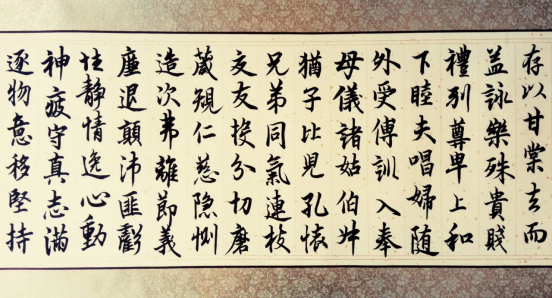 存以甘棠去而
益詠樂殊貴賤
禮別尊卑上和
下睦夫唱婦随
外受傅訓入奉
母儀諸姑伯叔
猶子比兒孔懐
兄弟同氣連枝
交友投分切磨
葴規仁慈隐恻
造次弗離節義
廉退顛沛匪虧
性靜情逸心動
神疲守真志滿
逐物意移堅持